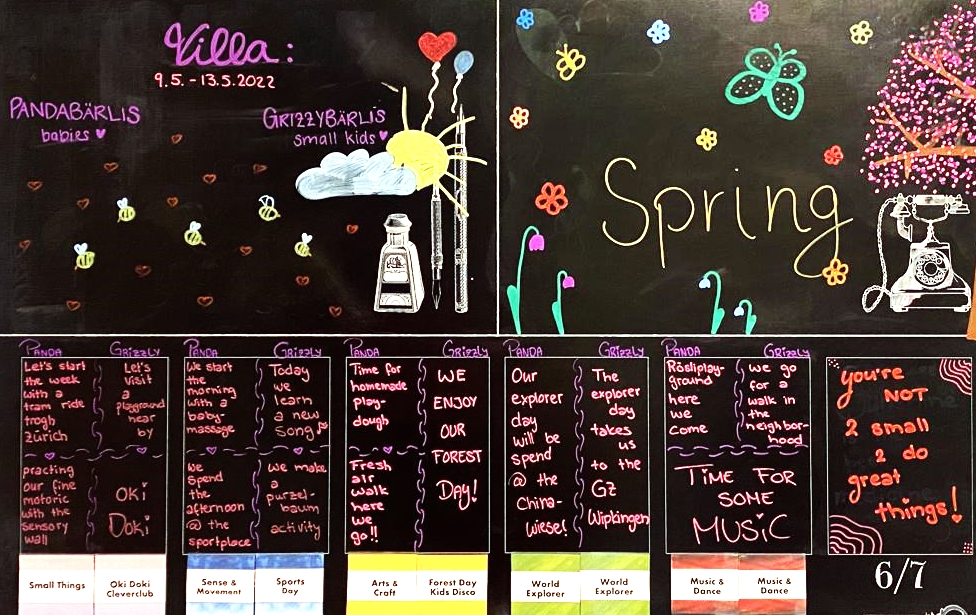 Villa:
9.5. - 13.5.2022
PANDABÄRLIS
babies
GRIZZYBÄRLIS
small kids
Spring
PANDA
Let's start
the week
with a
tram ride
trogh
Zürich
GRIZZLY
Let's
visit
a
playground
near
by
practing
our fine
motoric
with the
sensory
wall
OKI
DOKI
Small Things
Oki Doki
Cleverclub
PANDA
We start
the
morning
with a
baby-
massage
GRIZZLY
Today
we
learn
a new
song
we
spend
the
afternoon
@ the
sportplace
we make
a
purzel-
baum
activity
Sense &
Movement
Sports
Day
PANDA
Time for
homemade
play-
dough
GRIZZLY
WE
ENJOY
OUR
FOREST
DAY!
Fresh
air
walk
here
we
go!!
Arts &
Craft
Forest Day
Kids Disco
PANDA
Our
explorer
day
will be
spend
@ the
China-
wiese!
GRIZZLY
The
explorer
day
takes
us
to the
GZ
Wipkingen
World
Explorer
World
Explorer
PANDA
Rösliplay-
ground
here
we
come
GRIZZLY
we go
for a
walk in
the
neighbor-
hood
TIME FOR
SOME
MUSIC
Music &
Dance
Music &
Dance
you're
NOT
2 small
2 do
great
things!
6/7